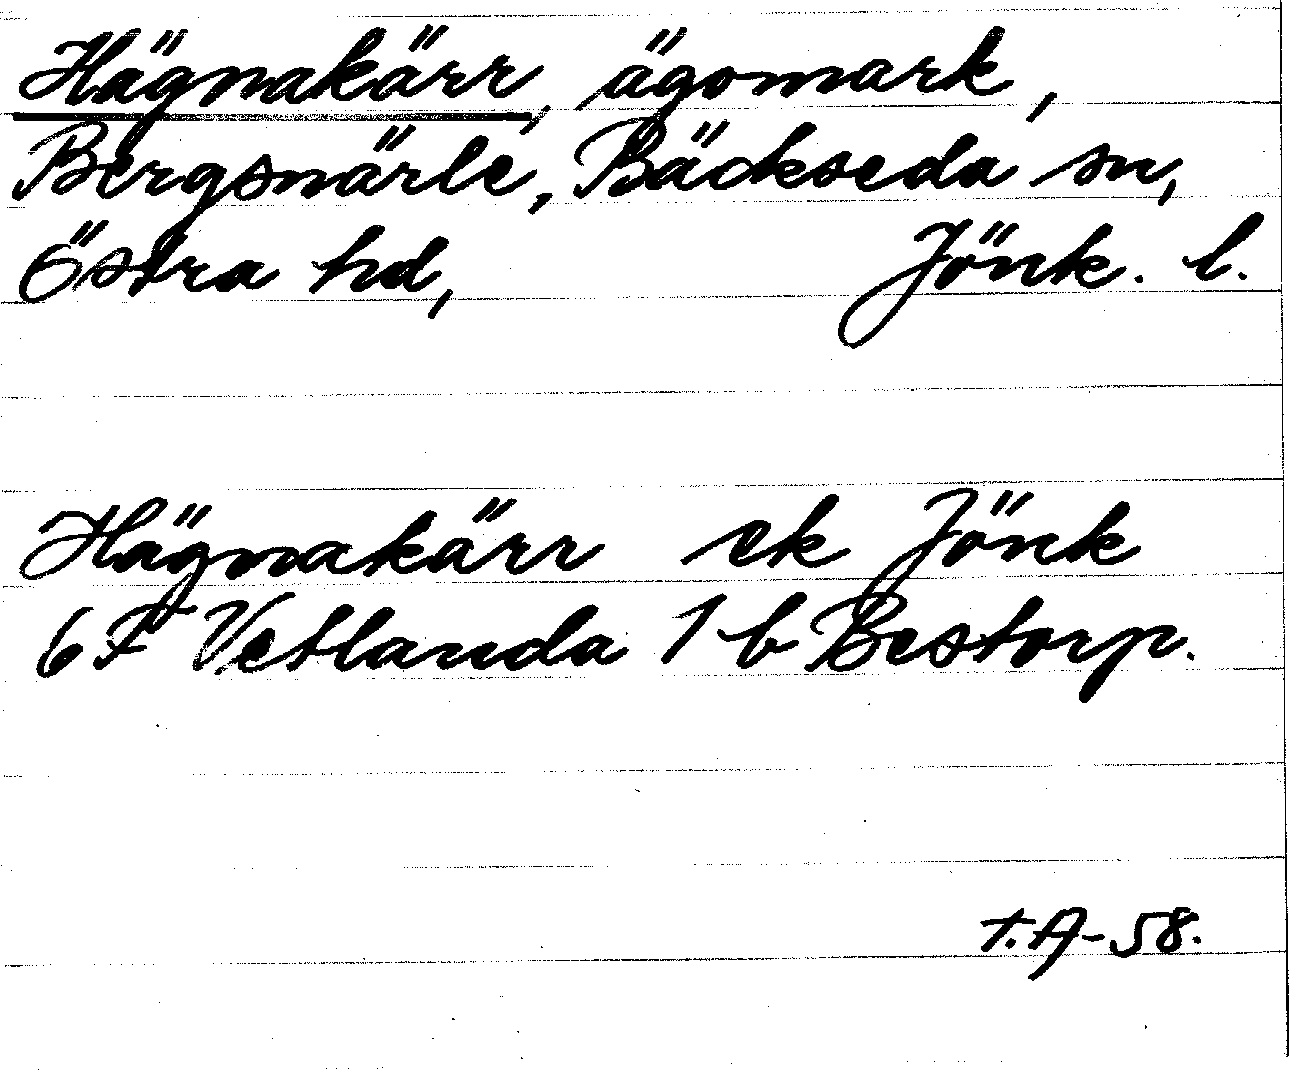 Hägnakärr, ägomark,
Bergsnärle, Bäckseda sn,
Östra hd, Jönk. l.
Hägnakärr ek Jönk
6F Vetlanda 1 b Bestorp.
T.A-58.